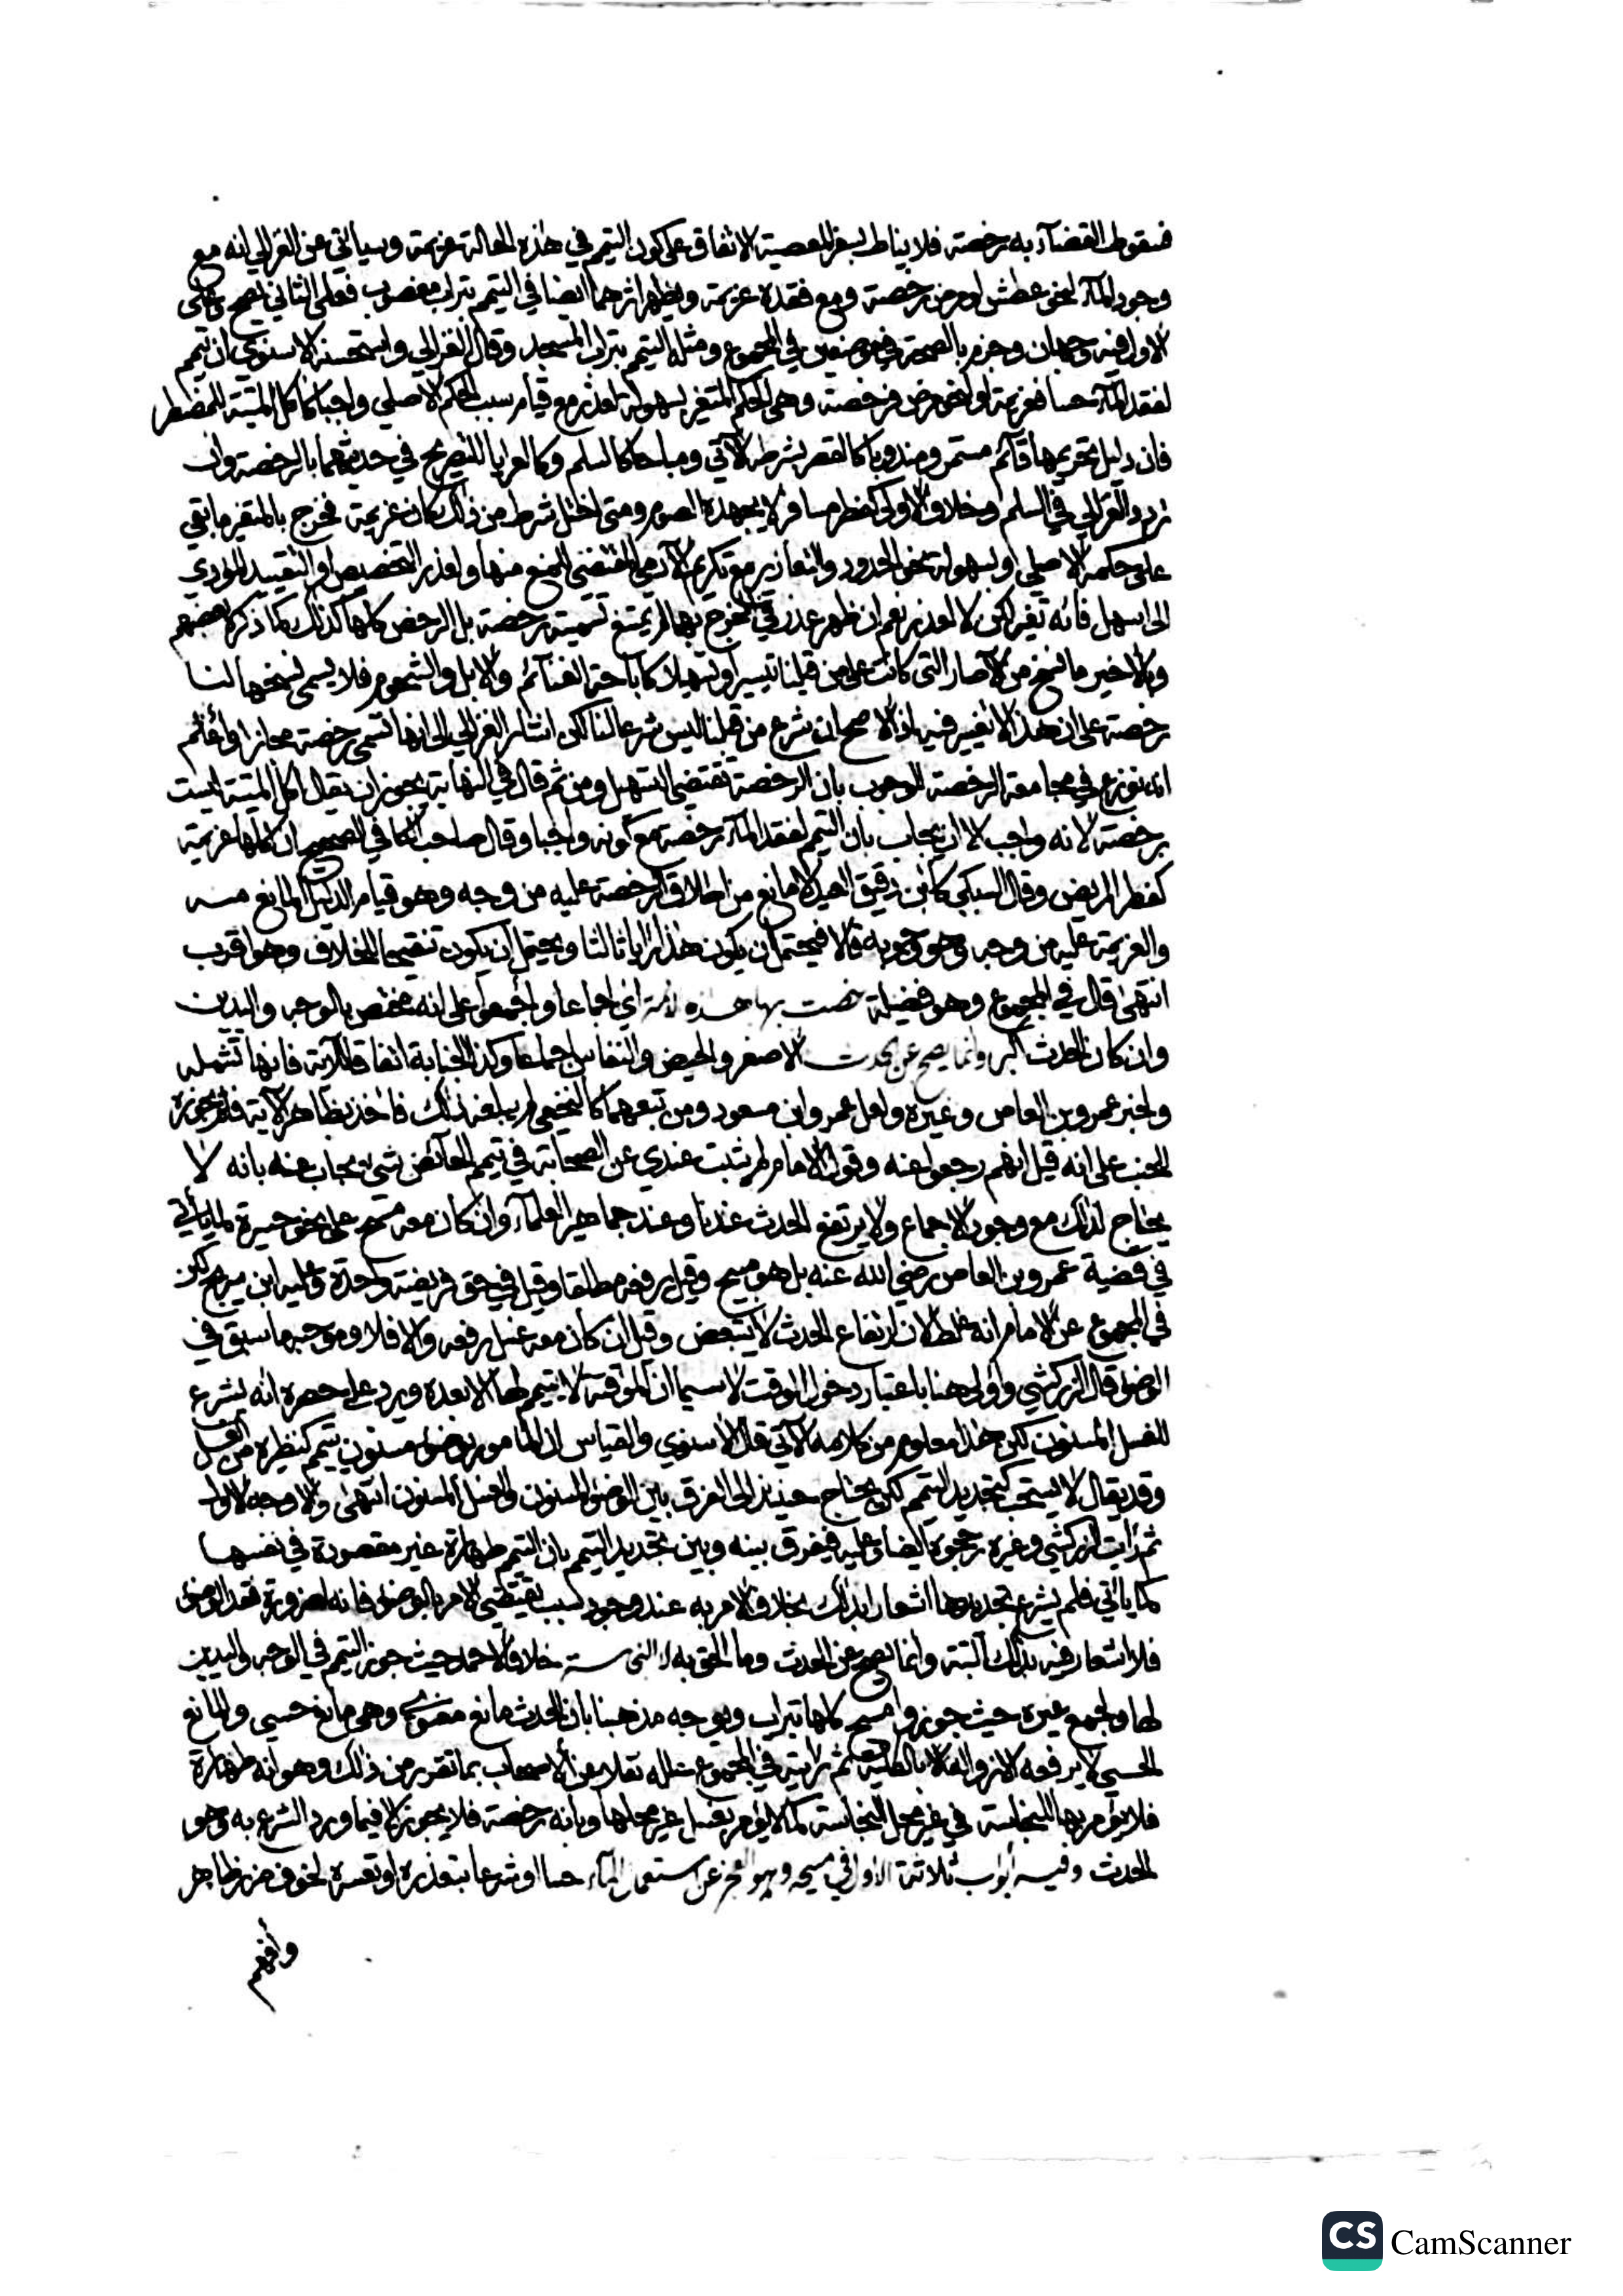 فسقوط القضاء به رخصة فلا يناط بسفر المعصية الاتفاق على كون التيمم في هذه الحالة عزيمة وسيأتي عن الغزالي انه مع
وجود الماء لنحو عطش او مرض رخصة ومع فقده عزيمة ويظهر اثرهما ايضا في التيمم بتراب مغصوب فعلى الثاني يصح وعلى
الاول فيه وجهان وجزم بالصحة في موضعين في المجموع ومثله التيمم بتراب المسجد وقال الغزالي واستحسنه الاسنوي ان تيمم
لفقد الماء حسا فعزيمة او لنحو مرض فرخصة وهي الحكم المتغير لسهولة لعذر مع قيام سبب الحكم الاصلي واجبا كاكل الميتة للمضطر
فان دليل تحريمها قائم مستمر ومندوبا كالقصر بشرطه الآتي ومباحا كالسلم وكالعرايا للتصريح في حديثهما بالرخصة وان
تردد الغزالي في السلم وخلاف الاولى كفطر مسافر لا يجهده الصوم ومتى اختل شرط من ذلك كان عزيمة فخرج بالمتغير ما بقي
على حكمه الاصلي او بسهولة نحو الحدود والتعازير مع تكريم الآدمي المقتضي المنع منها ولعذر التخصيص او التقييد المؤدي
الى اسهل فانه تغير لكن لا لعذر نعم ان ظهر عذر في المخرج بهما لم يمتنع تسميته رخصة بل الرخص كلها كذلك كما ذكره بعضهم
وبالاخير ما نسخ من الآصار التي كانت على من قبلنا تيسيرا وتسهيلا كاباحة الغنائم والابل والشحوم فلا يسمى نسخها لنا
رخصة على ان هذا لا تغيير فيه اذ الاصح ان شرع من قبلنا ليس شرعا لنا لكن اشار الغزالي الى انها تسمى رخصة مجازا واعلم
انه نوزع في مجامعة الرخصة للوجوب بان الرخصة تقتضي التسهيل ومن ثم قال في النهاية يجوز ان يقال اكل الميتة ليست
برخصة لانه واجب الا ان يجاب بان التيمم لفقد الماء رخصة مع كونه واجبا وقال صاحب الكافي الصحيح ان كلها عزيمة
كفطر المريض وقال السبكي كابن دقيق العيد لا مانع من اطلاق الرخصة عليه من وجه وهو قيام الدليل المانع منه
والعزيمة عليه من وجه وهو وجوبه قالا فيحتمل ان يكون هذا رايا ثالثا ويحتمل ان يكون تنقيحا للخلاف وهو اقرب
انتهى قال في المجموع وهو فضيلة خصت بها هذه الامة اي اجماعا واجمعوا على انه مختص بالوجه واليدين
وان كان الحدث اكبر وانما يصح عن الحدث الاصغر والحيض والنفاس اجماعا وكذا الجنابة اتفاقا للآية فانها تشمله
ولخبر عمرو بن العاص وغيره ولعل عمر وابن مسعود ومن تبعهما كالنخعي لم يبلغه ذلك فاخذ بظاهر الآية فلم يجوزه
للجنب على انه قيل انهم رجعوا عنه وقول الامام لم يثبت عندي عن الصحابة في تيمم الحائض شيء يجاب عنه بانه لا
يحتاج لذلك مع وجود الاجماع ولا يرتفع الحدث عندنا وعند جماهير العلماء وان كان معه مسح على نحو جبيرة لما يأتي
في قضية عمرو بن العاص رضي الله عنه بل هو مبيح وقيل يرفعه مطلقا وقيل في حق فريضة واحدة وعليه ابن سريج لكن
في المجموع عن الامام انه غلط لان ارتفاع الحدث لا يتبعض وقيل ان كان معه غسل رفعه والا فلا وموجبها سبق في
الوضوء قال الزركشي واولى هنا باعتبار دخول الوقت لا سيما ان المؤقتة لا يتيمم لها الا بعده ويرد على حصره انه يشرع
للغسل المسنون لكن هذا معلوم من كلامه الآتي قال الاسنوي والقياس ان المامور بوضوء مسنون يتيمم كنظيره من الغسل
وقد يقال لا يستحب كتجديد التيمم لكن يحتاج حينئذ الى الفرق بين الوضوء المسنون والغسل المسنون انتهى والاوجه الاول
ثم رايت الزركشي وغيره رجحوه ايضا وعليه فيفرق بينه وبين تجديد التيمم بان التيمم طهارة غير مقصودة في نفسها
كما ياتي فلم يشرع تجديدها اشعارا بذلك بخلاف الامر به عند وجود سبب يقتضي الامر بالوضوء فانه لضرورة فقد الوضوء
فلا اشعار فيه بذلك البتة وانما يصح عن الحدث وما الحق به لا النجاسة خلافا لاحمد حيث جوز التيمم في الوجه واليدين
لها ولجمع غيره حيث جوزوا مسح كلها بتراب ويوجه مذهبنا بان الحدث مانع معنوي وهي مانع حسي والمانع
الحسي لا يرفعه الا زواله بالكلية ثم رايته في المجموع علله نقلا عن الاصحاب بما تقرر من ذلك وهو انه طهارة
فلا يؤمر بها للنجاسة في غير محل النجاسة كما لا يؤمر بغسل غير محلها وبانه رخصة فلا يجوز الا فيما ورد الشرع به وهو
الحدث وفيه ابواب ثلاثة الاول في مبيحه وهو العجز عن استعمال الماء حسا او شرعا بتعذره او تعسره لخوف ضرر ظاهر
CS CamScanner